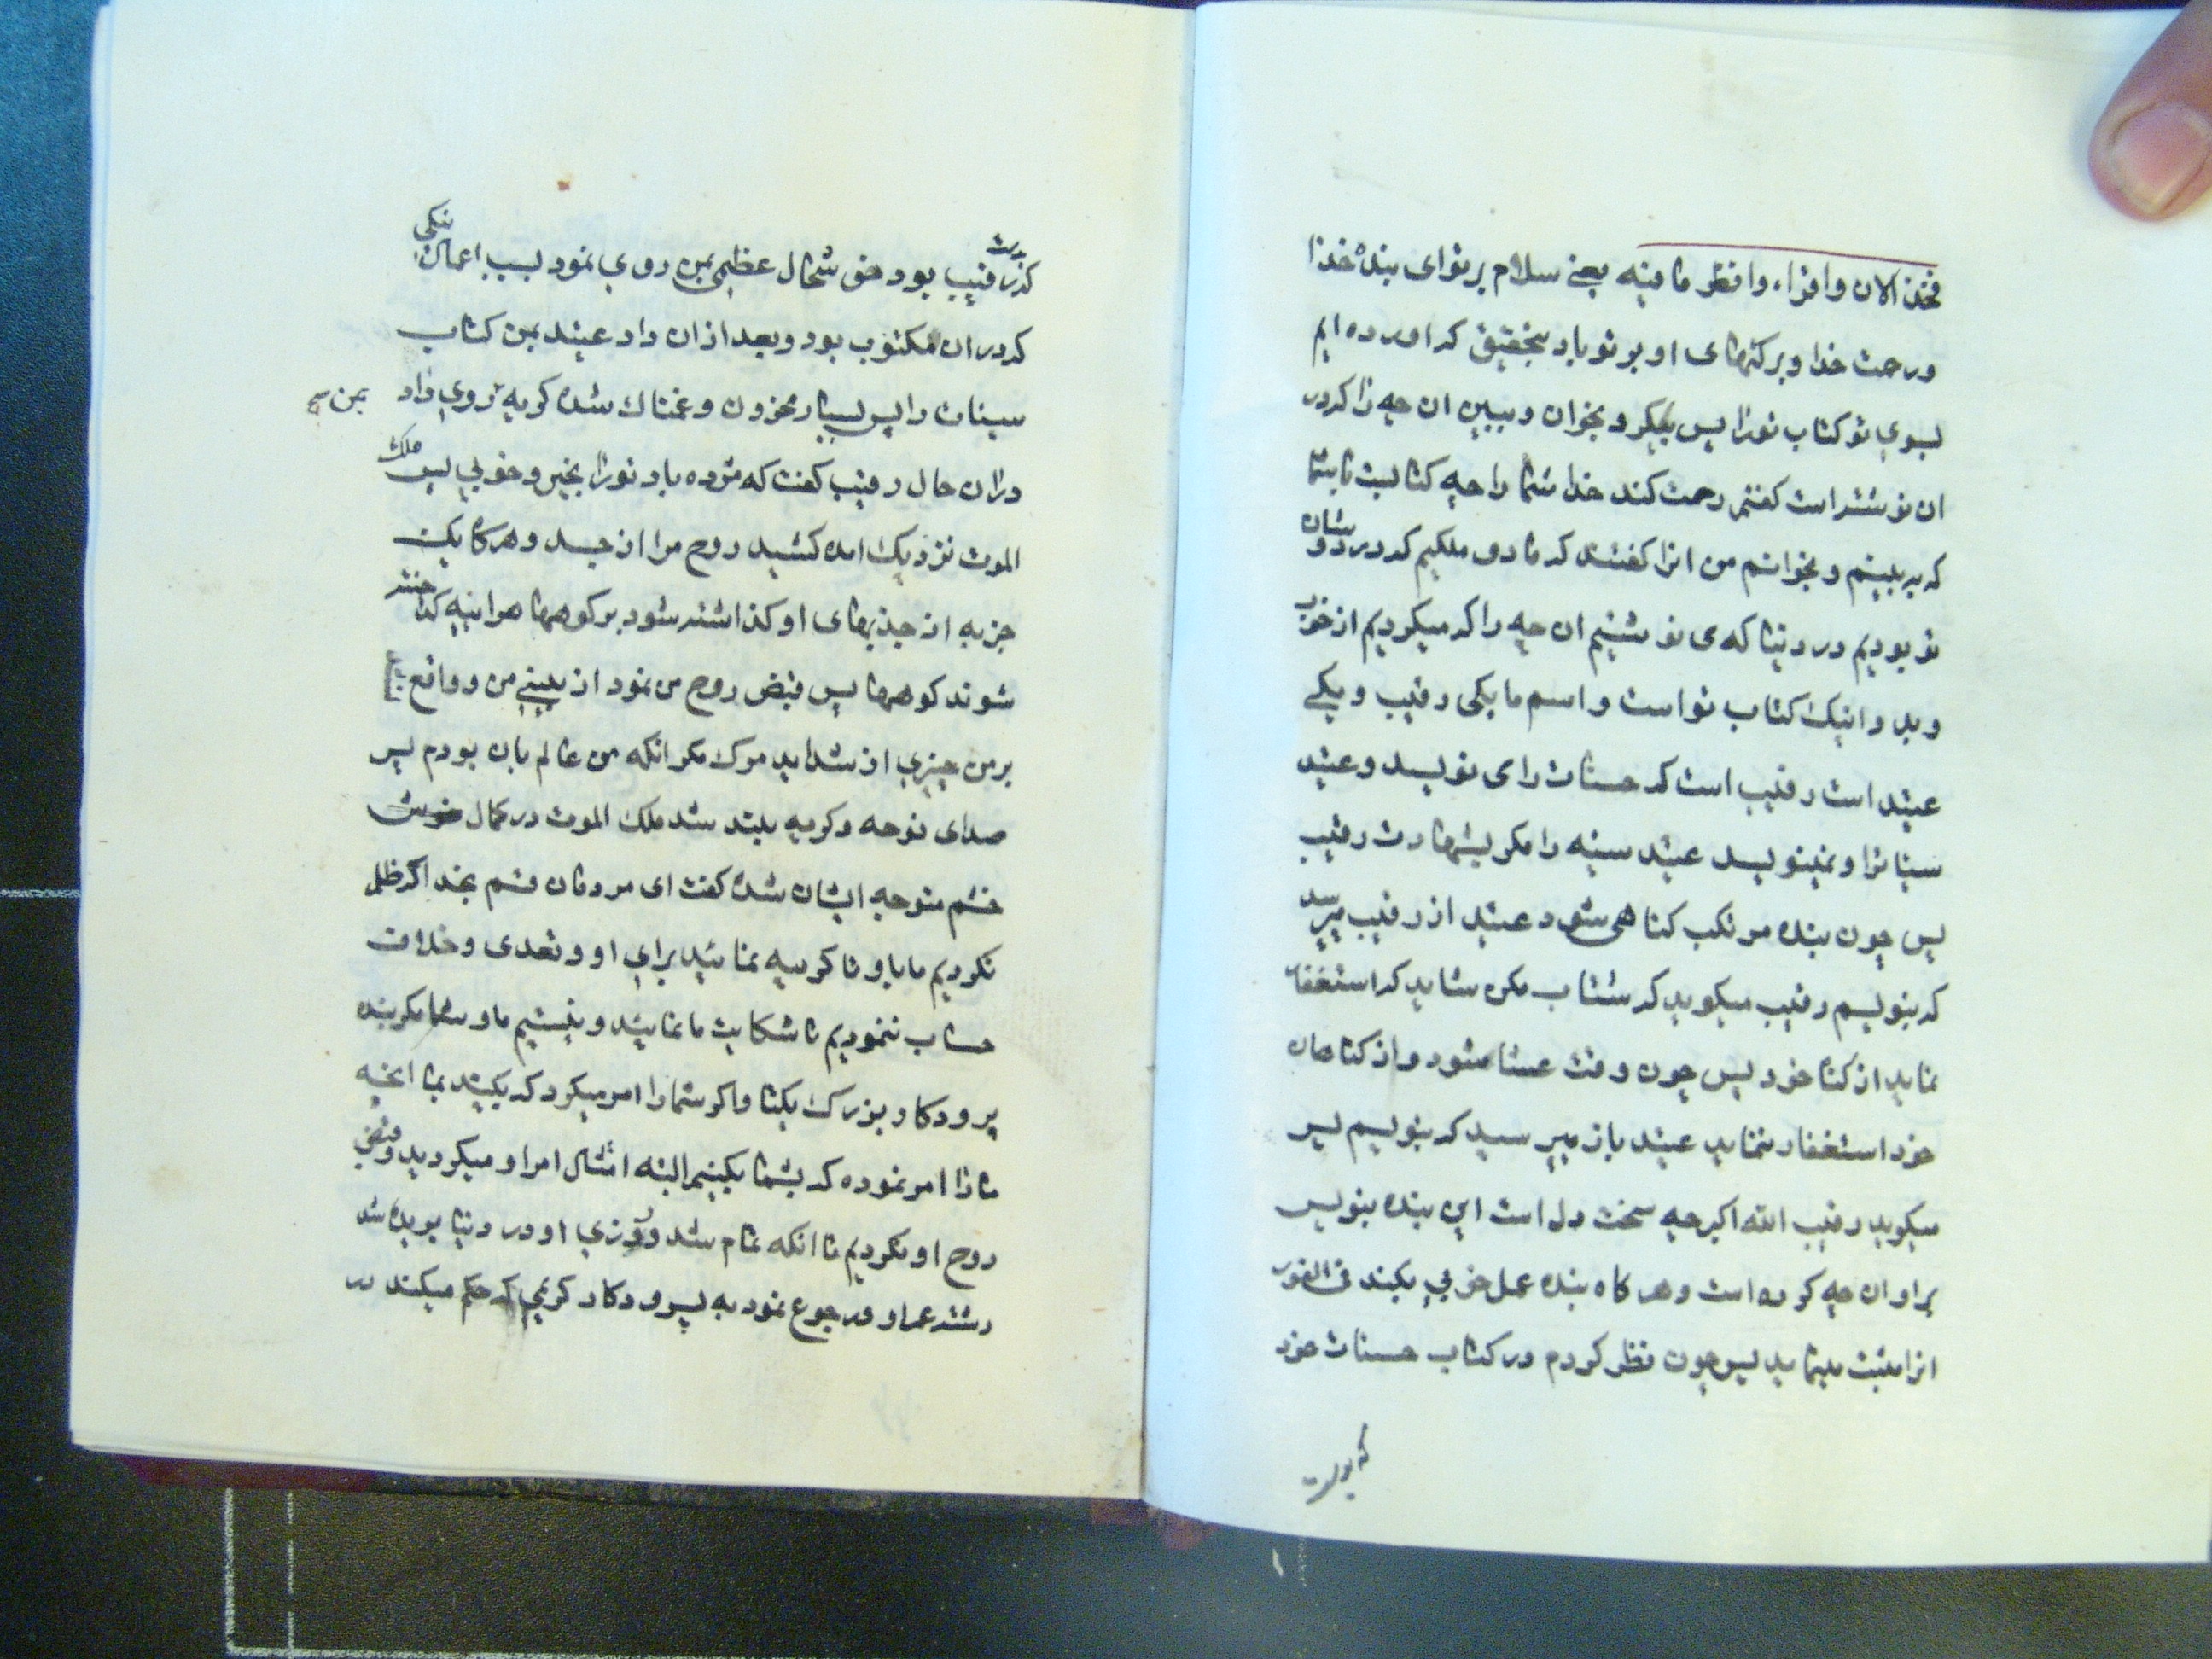 فخذ الان واقراء وانظر ما فیه یعنے سلام بر تو ای بندۀ خدا
ورحمت خدا وبرکتهای او بر تو باد بتحقیق که اورده ایم
بسوی تو کتاب تو را پس بکیر و بخوان و ببین ان چه را که در
ان نوشته است کفتم رحمت کند خدا شما را چه کتابیست تا بشما
که به بینم و بخوانم من انرا کفتند که ما دو ملکیم که در دو شان
تو بودیم در دنیا که می نوشتیم ان چه را که میکردیم از خوب
و بد و اینک کتاب تو است و اسم ما یکی رقیب و یکے
عتید است رقیب است که حسنات را می نویسد و عتید
سیئاترا و نمینویسد عتید سیئه را مکر بشهادت رقیب
پس چون بنده مرتکب کناهی شود عتید از رقیب میپرسد
که بنویسم رقیب میکوید که شتاب مکن شاید که استغفار
نماید از کناه خود پس چون وقت عشا شود و از کناهان
خود استغفار ننماید عتید باز میپرسید که بنویسم پس
میکوید رقیب الله اکبر چه سخت دل است این بنده بنویس
براو ان چه کرده است و هر کاه بنده عمل خوبی بکند فی الفور
انرا مثبت مینماید پس چون نظر کردم در کتاب حسنات خود
که بدست
که بدست رقیب بود خوشحال عظیمی بمن روی نمود بسبب اعمال نیکی
که در ان مکتوب بود و بعد از ان داد عتید بمن کتاب
سیئات را پس بسیار محزون و غمناک شده کریه روی داد بمن
در ان حال رقیب کفت که مژده باد تو را بخیر و خوبی پس ملک
الموت نزدیک امده کشید روح مرا از جسد و هر کاه یک
جزبه از جذبهای او کذاشته شود بر کوهها هر اینه کداخته
شوند کوهها پس قبض روح من نمود از بینے من و واقع
بر من چیزی از شداید مرک مکر انکه من عالم بان بودم پس
صدای نوحه و کریه بلند شد ملک الموت در کمال
خشم متوجه ایشان شده کفت ای مردمان قسم بخدا که ظلم
نکردیم ما باو تا کریه نمائید برای او و تعدی و خلاف
حساب ننمودیم تا شکایت ما نمائید و نیستیم ما و شما مکر بنده
پرودکار بزرک یکتا و اکر شما را امر میکرد که بکنید بما انچه
ما را امر نموده که بشما بکنیم البته امتثال امر او میکردید و قبض
روح او نکردیم تا انکه تمام شد روزی او در دنیا بریده شد
رشته عمر او و رجوع نمود به پرودکار کریمی که حکم میکند در